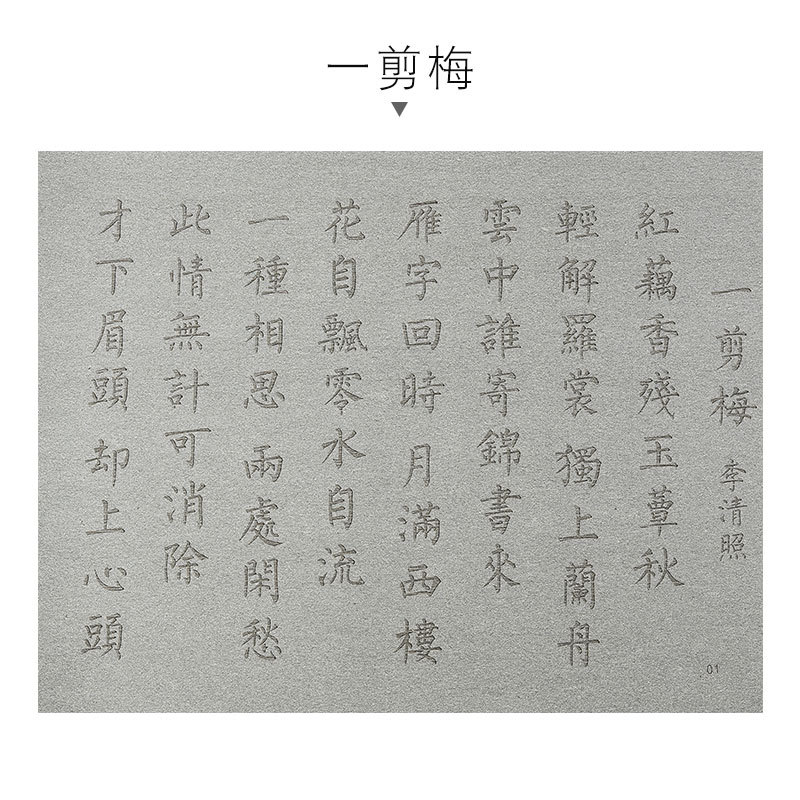 一剪梅
一剪梅 李清照
紅藕香殘玉蕈秋
輕解羅裳 獨上蘭舟
雲中誰寄錦書來
雁字回時 月滿西樓
花自飄零水自流
一種相思 兩處閑愁
此情無計可消除
才下眉頭 却上心頭
01